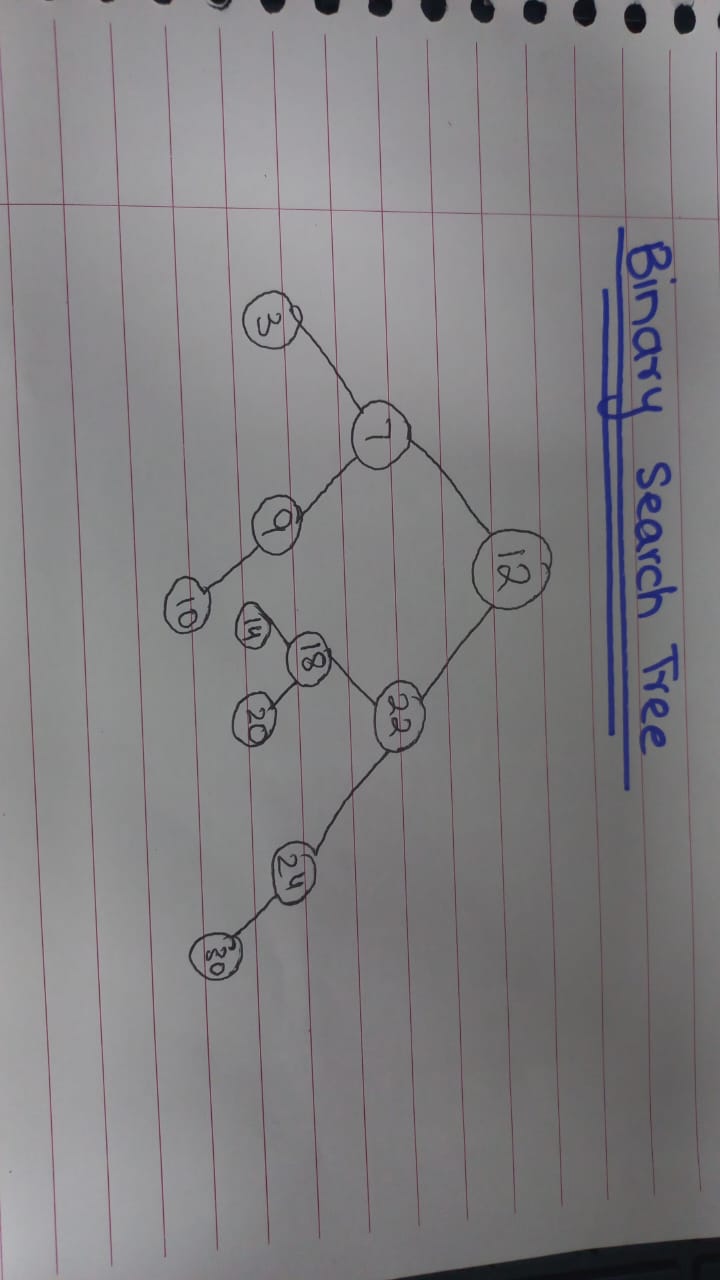 Binary Search Tree
12
7 22
3 9 18 24
10 14 20 30